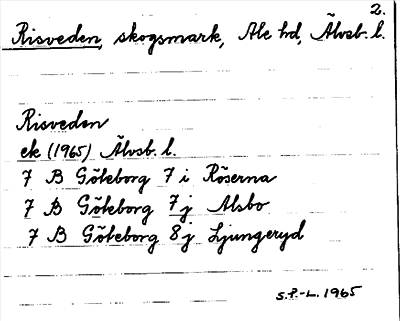 2.
Risveden, skogsmark, Ale hd, Älvsb. l.
Risveden
ek (1965) Älvsb. l.
7 B Göteborg 7 i Röserna
7 B Göteborg 7 j Alsbo
7 B Göteborg 8 j Ljungeryd
S.P.-L. 1965